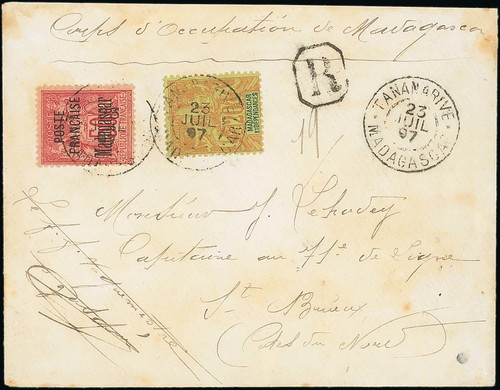 Corps d'Occupation de Madagascar
R
POSTE
FRANÇAISE
Madagascar
MADAGASCAR
ET DÉPENDANCES
23
JUIL
97
TANANARIVE
23
JUIL
97
MADAGASCAR
19
Monsieur J. Lehodey
Capitaine au 71e de Ligne
St Brieuc
Côtes du Nord
Le